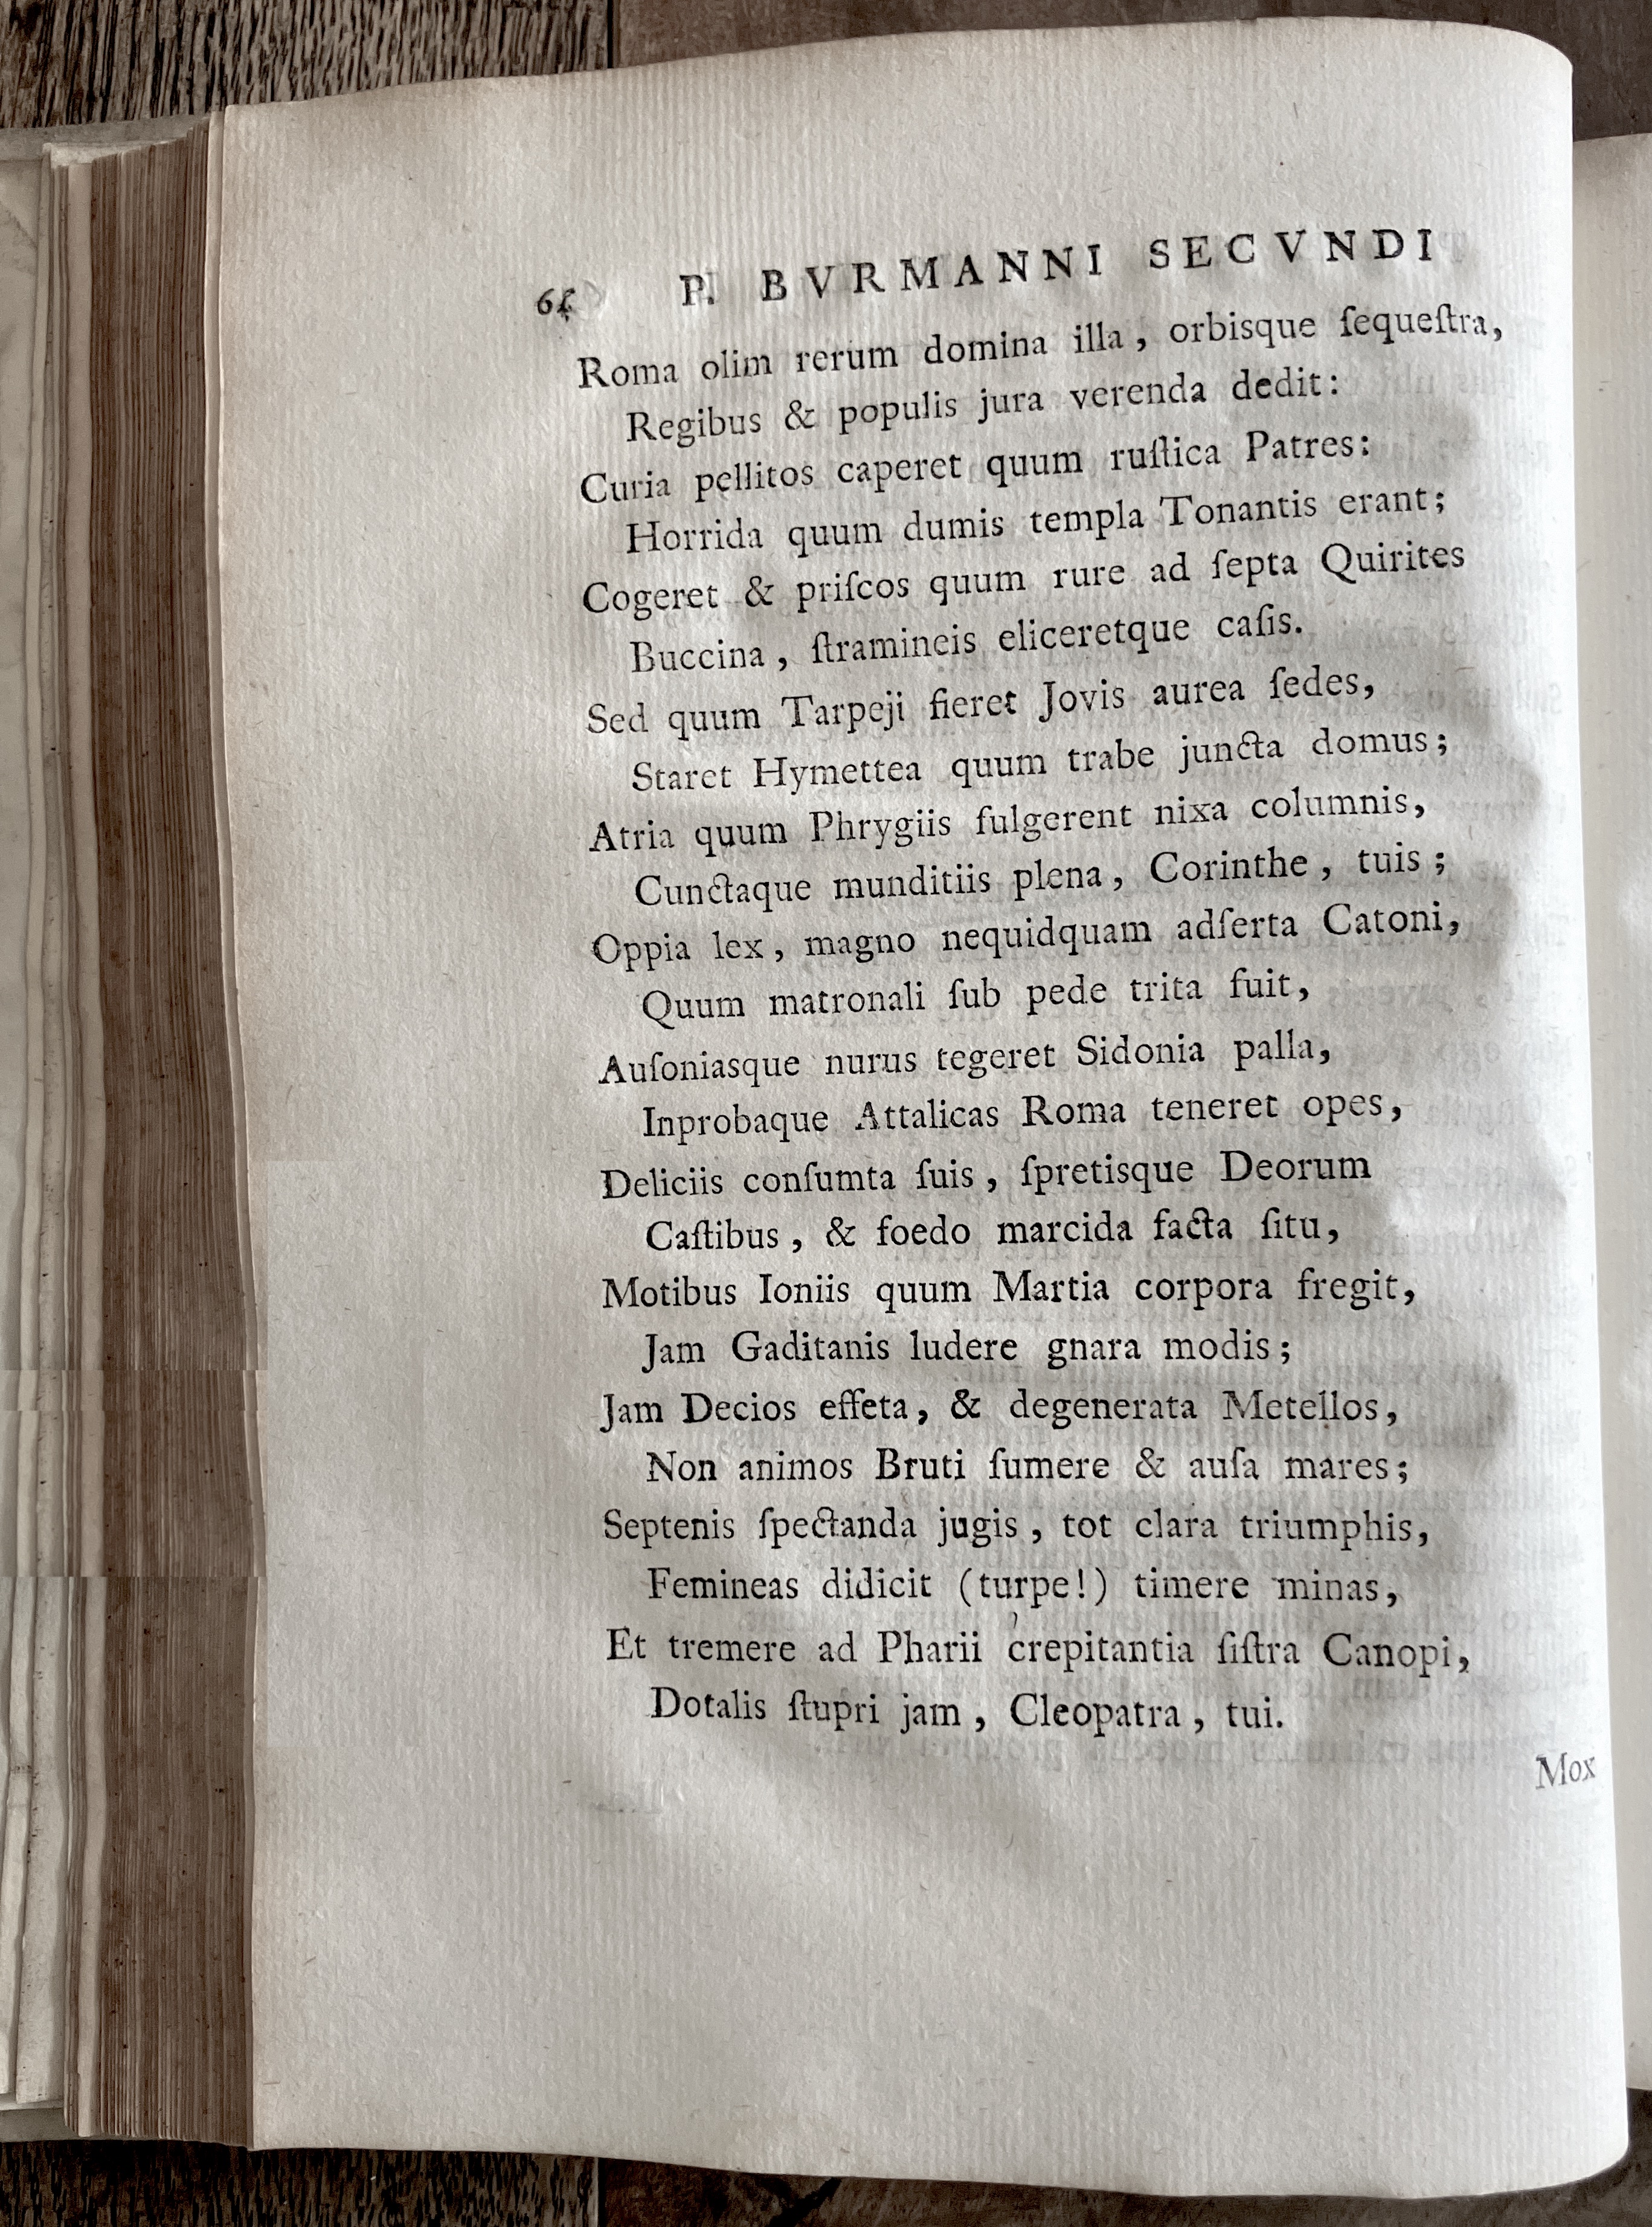 P. BVRMANNI SECVNDI
Roma olim rerum domina illa, orbisque ſequeſtra,
Regibus & populis jura verenda dedit:
Curia pellitos caperet quum ruſtica Patres:
Horrida quum dumis templa Tonantis erant;
Cogeret & priſcos quum rure ad ſepta Quirites
Buccina, ſtramineis eliceretque caſis.
Sed quum Tarpeji fieret Jovis aurea ſedes,
Staret Hymettea quum trabe juncta domus;
Atria quum Phrygiis fulgerent nixa columnis,
Cunctaque munditiis plena, Corinthe, tuis;
Oppia lex, magno nequidquam adſerta Catoni,
Quum matronali ſub pede trita fuit,
Auſoniasque nurus tegeret Sidonia palla,
Inprobaque Attalicas Roma teneret opes,
Deliciis conſumta ſuis, ſpretisque Deorum
Caſtibus, & foedo marcida facta ſitu,
Motibus Ioniis quum Martia corpora fregit,
Jam Gaditanis ludere gnara modis;
Jam Decios effeta, & degenerata Metellos,
Non animos Bruti ſumere & auſa mares;
Septenis ſpectanda jugis, tot clara triumphis,
Femineas didicit (turpe!) timere minas,
Et tremere ad Pharii crepitantia ſiſtra Canopi,
Dotalis ſtupri jam, Cleopatra, tui.
Mox